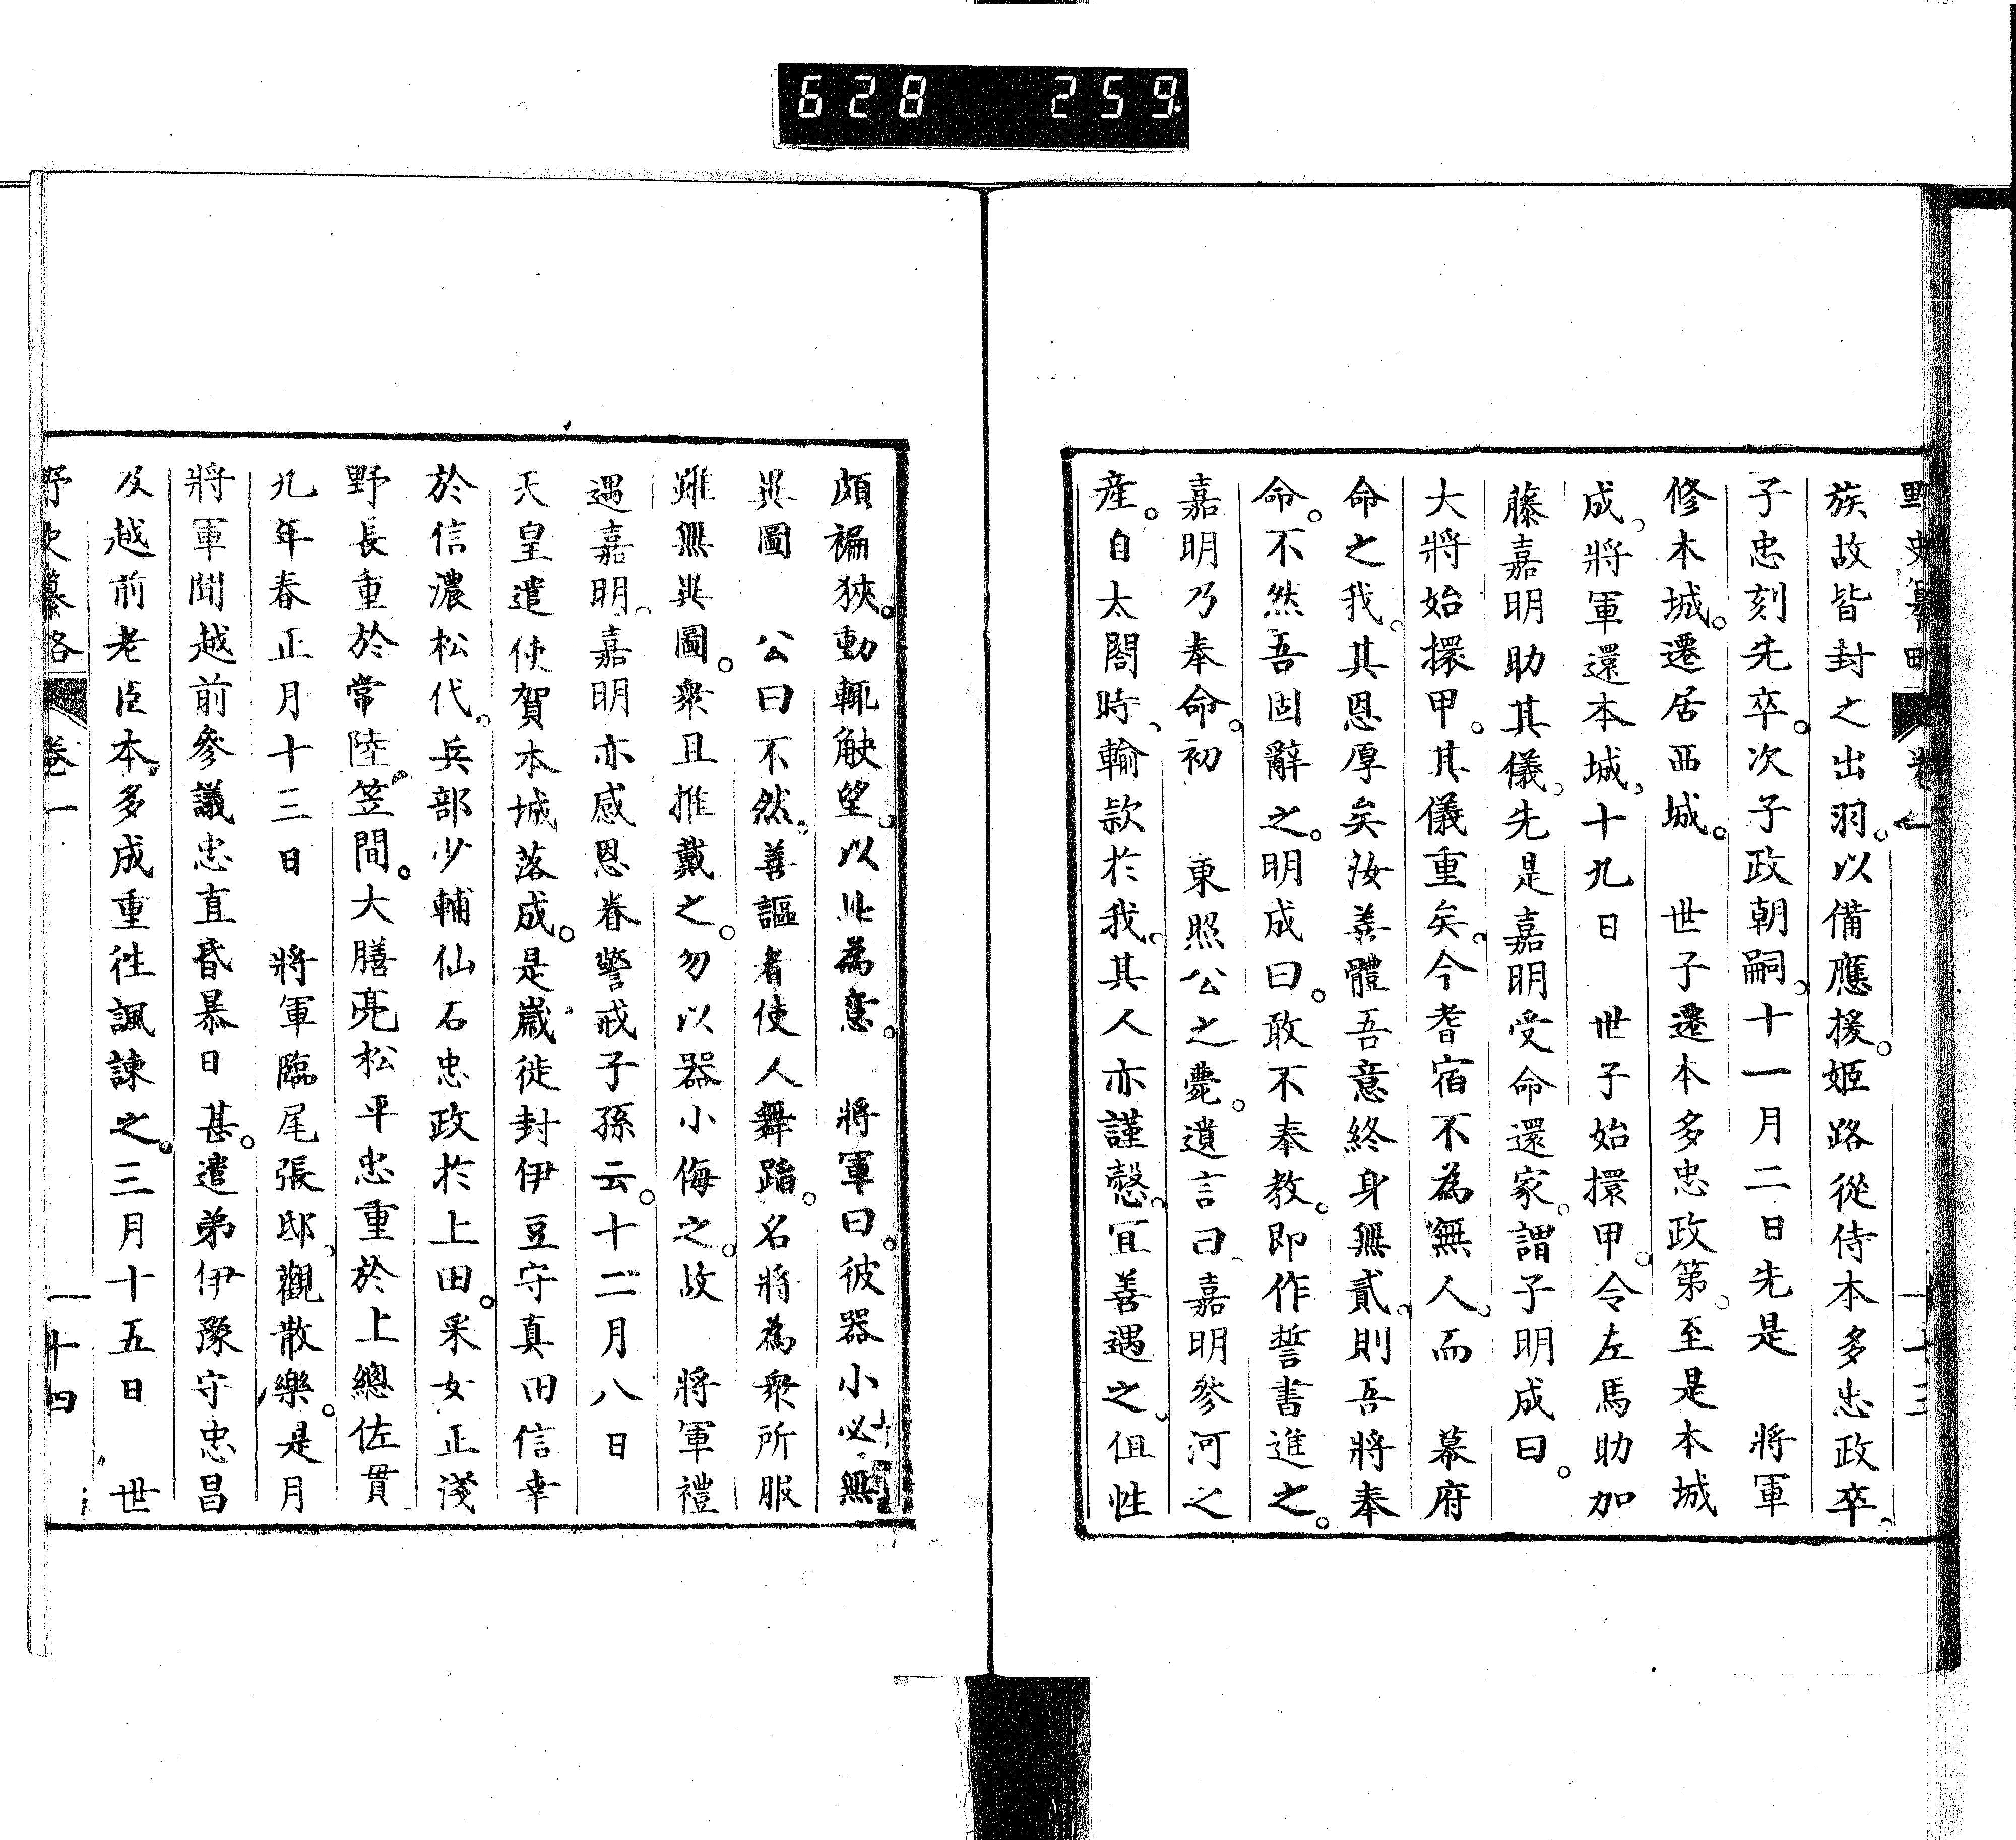 628 259
野史纂略 卷一 一十三
族故皆封之出羽。以備應援。姬路從侍本多忠政卒。
子忠刻先卒。次子政朝嗣。十一月二日先是 將軍
修本城。遷居西城。 世子遷本多忠政第。至是本城
成。將軍還本城。十九日 世子始擐甲。令左馬助加
藤嘉明助其儀。先是嘉明受命還家。謂子明成曰。
大將始擐甲。其儀重矣。今耆宿不為無人。而 幕府
命之我。其恩厚矣汝善體吾意終身無貳。則吾將奉
命。不然吾固辭之。明成曰。敢不奉教。即作誓書進之。
嘉明乃奉命。初 東照公之薨。遺言曰。嘉明參河之
產。自太閤時、輸款於我。其人亦謹愨。宜善遇之。但性
頗褊狹。動輒觖望。以此為意。 將軍曰。彼器小必無
異圖 公曰不然。善謳者使人舞蹈。名將為衆所服
雖無異圖。衆且推戴之。勿以器小侮之。故 將軍禮
遇嘉明。嘉明亦感恩眷警戒子孫云。十二月八日
天皇遣使賀本城落成。是歲徙封伊豆守真田信幸
於信濃松代。兵部少輔仙石忠政於上田。采女正淺
野長重於常陸笠間。大膳亮松平忠重於上總佐貫
九年春正月十三日 將軍臨尾張邸。觀散樂。是月
將軍聞越前參議忠直昏暴日甚。遣弟伊豫守忠昌
及越前老臣本多成重往諷諫之。三月十五日 世
野史纂略 卷一 一十四